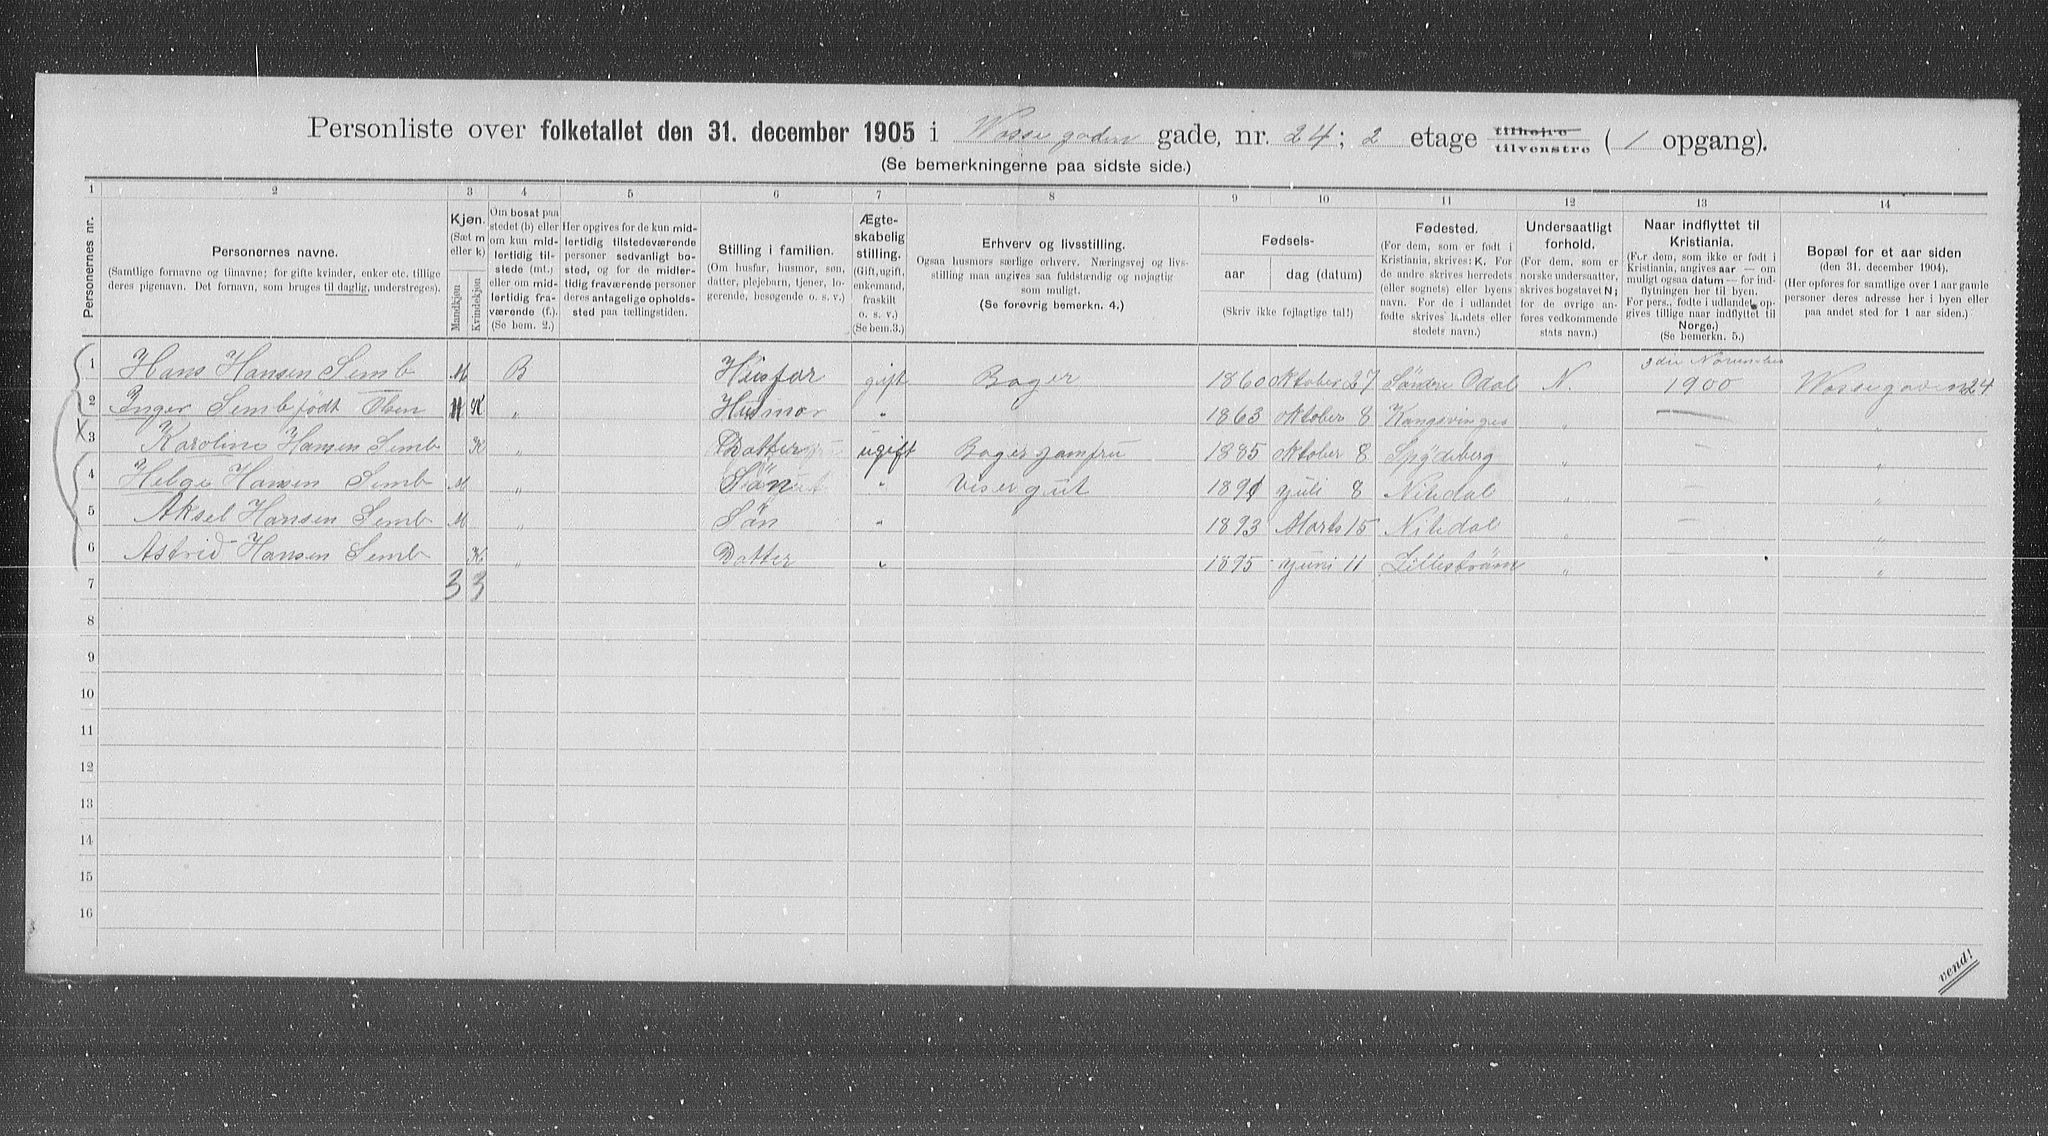 Personliste over folketallet den 31. december 1905 i Vossegaden gade, nr. 24; 2 etage tilhøjre tilvenstre ( 1 opgang).
(Se bemerkningerne paa sidste side.)
1 2 3 4 5 6 7 8 9 10 11 12 13 14
Personernes nr.
Personernes navne.
(Samtlige fornavne og tilnavne; for gifte kvinder, enker etc. tillige
deres pigenavn. Det fornavn, som bruges til daglig, understreges).
Kjøn.
(Sæt m
eller k)
Mandkjøn
Kvindekjøn
Om bosat paa
stedet (b) eller
om kun mid-
lertidig til-
stede (mt.)
eller om mid-
lertidig fra-
værende (f.).
(Se bem. 2.)
Her opgives for de kun mid-
lertidig tilstedeværende
personer sedvanligt bo-
sted, og for de midler-
tidig fraværende personer
deres antagelige opholds-
sted paa tællingstiden.
Stilling i familien.
(Om husfar, husmor, søn,
datter, plejebarn, tjener, lo-
gerende, besøgende o. s. v.)
Ægte-
skabelig
stilling.
(Gift, ugift,
enkemand,
fraskilt
o. s. v.)
(Se bem. 3.)
Erhverv og livsstilling.
Ogsaa husmors særlige erhverv. Næringsvej og livs-
stilling maa angives saa fuldstændig og nøjagtig
som muligt.
(Se forøvrig bemerkn. 4.)
Fødsels-
aar dag (datum)
(Skriv ikke fejlagtige tal!)
Fødested.
(For dem, som er født i
Kristiania, skrives: K. For
de andre skrives herredets
(eller sognets) eller byens
navn. For de i udlandet
fødte skrives landets eller
stedets navn.)
Undersaatligt
forhold.
(For dem, som er
norske undersaatter,
skrives bogstavet N;
for de øvrige an-
føres vedkommende
stats navn.)
Naar indflyttet til
Kristiania.
(For dem, som ikke er født i
Kristiania, angives aar — om
muligt ogsaa datum — for ind-
flytningen her til byen.
For pers., fødte i udlandet, op-
gives tillige naar indflyttet til
Norge.)
(Se bemerkn. 5.)
Bopæl for et aar siden
(den 31. december 1904).
(Her opføres for samtlige over 1 aar gamle
personer deres adresse her i byen eller
paa andet sted for 1 aar siden.)
3die November
1 Hans Hansen Semb M B Husfar gift Bager 1860 oktober 27 Söndre Odal N. 1900 Vossegaden 24
2 Inger Semb født Olsen K " Husmor " 1863 oktober 8 Kongsvinger " — "
X 3 Karoline Hansen Semb K " Datter ugift Bager jomfru 1885 oktober 8 Spydeberg " — "
4 Helge Hansen Semb M " Sön " Visergut 1891 juli 8 Nitedal " — "
5 Aksel Hansen Semb M " Sön " 1893 Marts 15 Nitedal " — "
6 Astrid Hansen Semb K " Datter " 1895 juni 11 Lilleström " — "
7 3 3
8
9
10
11
12
13
14
15
16
vend!